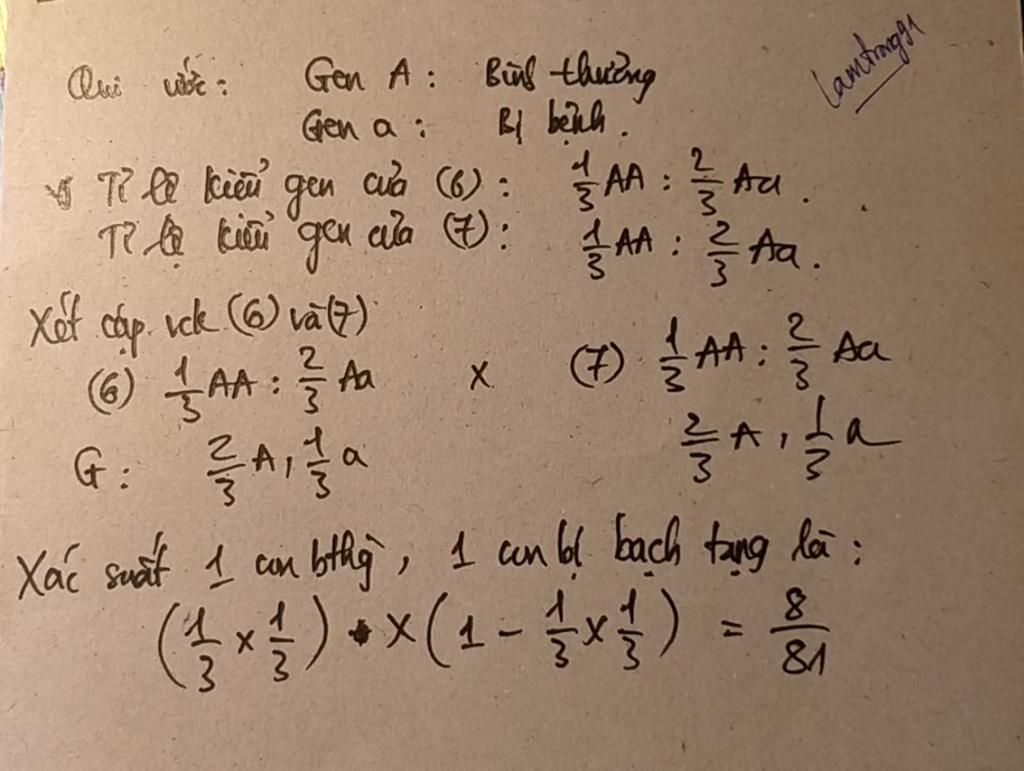 Lamtrong91
Qui ước: Gen A: Bình thường
Gen a: Bị bệnh.
Tỉ lệ kiểu gen của (6): 1/3 AA : 2/3 Aa.
Tỉ lệ kiểu gen của (7): 1/3 AA : 2/3 Aa.
Xét cặp vck (6) và (7)
(6) 1/3 AA : 2/3 Aa x (7) 1/3 AA : 2/3 Aa
G: 2/3 A, 1/3 a 2/3 A, 1/3 a
Xác suất 1 con bthg, 1 con bị bạch tạng là:
(1/3 x 1/3) x (1 - 1/3 x 1/3) = 8/81